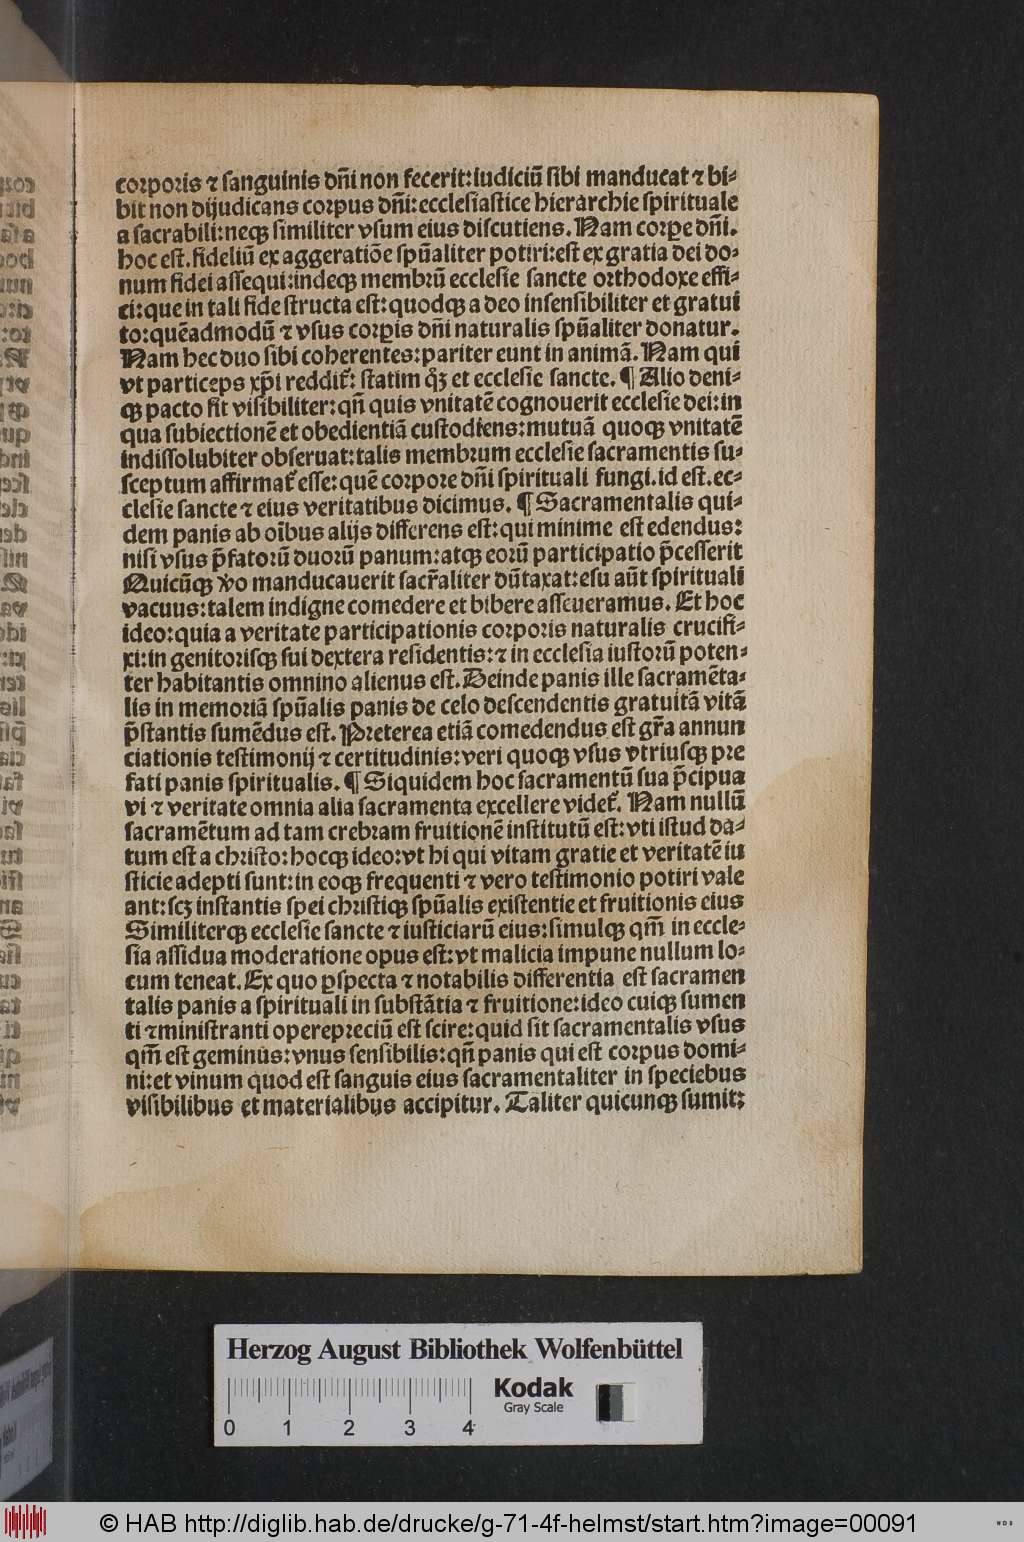 corporis ⁊ sanguinis dñi non fecerit:iudiciũ sibi manducat ⁊ bi⸗
bit non dijudicans corpus dñi:ecclesiastice hierarchie spirituale
a sacrabili:neqꝫ similiter vsum eius discutiens. Nam corpe dñi.
hoc est.fideliũ ex aggeratiõe spũaliter potiri:est ex gratia dei do⸗
num fidei assequi:indeqꝫ membrũ ecclesie sancte orthodoxe effi⸗
ci:que in tali fide structa est:quodqꝫ a deo insensibiliter et gratui
to:quẽadmodũ ⁊ vsus corpis dñi naturalis spũaliter donatur.
Nam hec duo sibi coherentes:pariter eunt in animã. Nam qui
vt particeps xp̃i reddit᷑: statim qꝫ et ecclesie sancte. ¶ Alio deni⸗
qꝫ pacto fit visibiliter:qñ quis vnitatẽ cognouerit ecclesie dei:in
qua subiectionẽ et obedientiã custodiens:mutuã quoqꝫ vnitatẽ
indissolubiter obseruat:talis membrum ecclesie sacramentis su⸗
sceptum affirmat᷑ esse:quẽ corpore dñi spirituali fungi.id est.ec⸗
clesie sancte ⁊ eius veritatibus dicimus. ¶ Sacramentalis qui⸗
dem panis ab oĩbus alijs differens est:qui minime est edendus:
nisi vsus p̃fatorũ duorũ panum:atqꝫ eorũ participatio p̃cesserit
Quicũqꝫ v̊o manducauerit sacr̃aliter dũtaxat:esu aũt spirituali
vacuus:talem indigne comedere et bibere asseueramus. Et hoc
ideo:quia a veritate participationis corporis naturalis crucifi⸗
xi:in genitorisqꝫ sui dextera residentis:⁊ in ecclesia iustorũ poten⸗
ter habitantis omnino alienus est.Deinde panis ille sacramẽta⸗
lis in memoriã spũalis panis de celo descendentis gratuitã vitã
p̃stantis sumẽdus est. Preterea etiã comedendus est gr̃a annun
ciationis testimonij ⁊ certitudinis:veri quoqꝫ vsus vtriusqꝫ pre
fati panis spiritualis. ¶ Siquidem hoc sacramentũ sua p̃cipua
vi ⁊ veritate omnia alia sacramenta excellere videt᷑. Nam nullũ
sacramẽtum ad tam crebram fruitionẽ institutũ est:vti istud da⸗
tum est a christo:hocqꝫ ideo:vt hi qui vitam gratie et veritatẽ iu
sticie adepti sunt:in eoqꝫ frequenti ⁊ vero testimonio potiri vale
ant:scꝫ instantis spei christiqꝫ spũalis existentie et fruitionis eius
Similiterqꝫ ecclesie sancte ⁊ iusticiarũ eius:simulqꝫ qm̃ in eccle⸗
sia assidua moderatione opus est:vt malicia impune nullum lo⸗
cum teneat.Ex quo ꝑspecta ⁊ notabilis differentia est sacramen
talis panis a spirituali in substãtia ⁊ fruitione:ideo cuiqꝫ sumen
ti ⁊ministranti opereprecium est scire:quid sit sacramentalis vsus
qm̃ est geminus:vnus sensibilis:qñ panis qui est corpus domi⸗
ni:et vinum quod est sanguis eius sacramentaliter in speciebus
visibilibus et materialibus accipitur. Taliter quicunqꝫ sumit:
Herzog August Bibliothek Wolfenbüttel
Kodak
Gray Scale
0 1 2 3 4
© HAB http://diglib.hab.de/drucke/g-71-4f-helmst/start.htm?image=00091